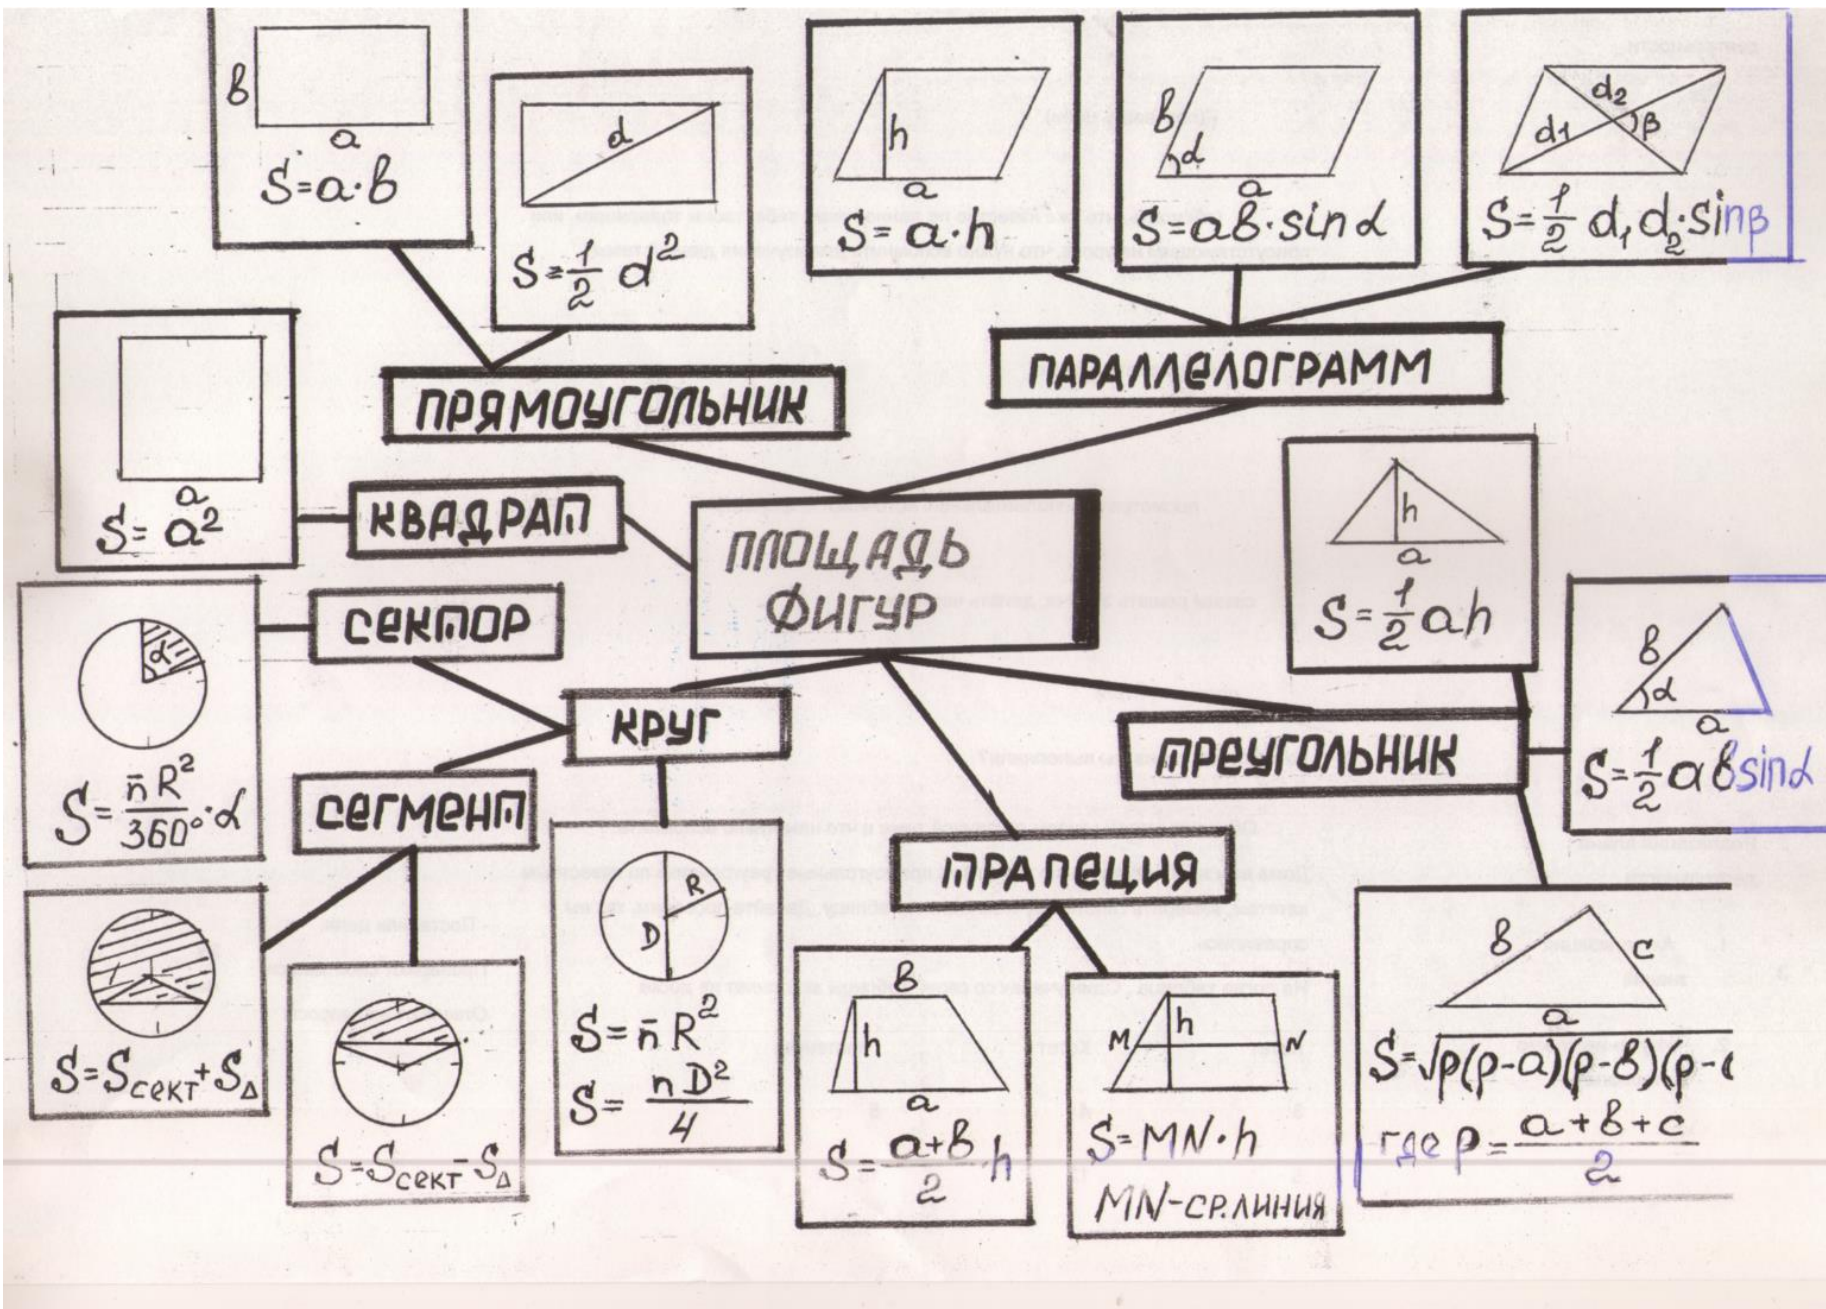 в
a
S=a·в
d
S=1/2 d²
h
a
S=a·h
в
α
a
S=aв·sinα
d2
d1
β
S=1/2 d₁d₂·sinβ
ПРЯМОУГОЛЬНИК
ПАРАЛЛЕЛОГРАММ
a
S=a²
КВАДРАТ
ПЛОЩАДЬ
ФИГУР
h
a
S=1/2 ah
α
S=n̄R²/360°·α
СЕКТОР
КРУГ
СЕГМЕНТ
ТРЕУГОЛЬНИК
в
α
a
S=1/2 aвsinα
S=Sсект+SΔ
S=Sсект-SΔ
R
D
S=n̄R²
S=nD²/4
ТРАПЕЦИЯ
в
h
a
S=a+в/2·h
M
h
N
S=MN·h
MN-СР.ЛИНИЯ
в
c
a
S=√p(p-a)(p-в)(p-
где p=a+в+c/2